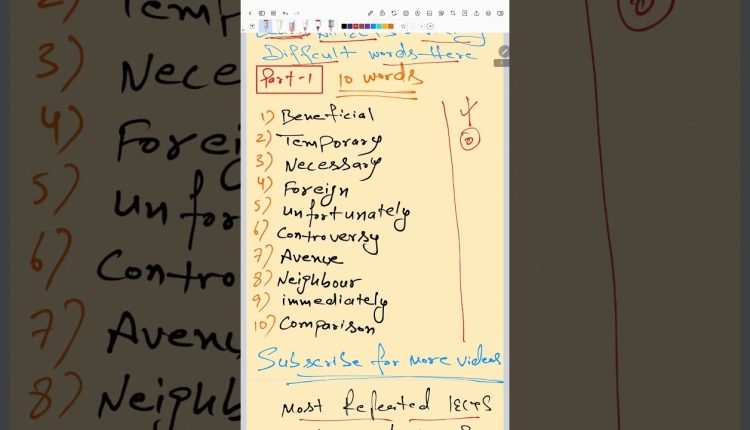 Difficult words Here
Part-1 10 words
1) Beneficial
2) Temporary
3) Necessary
4) Foreign
5) unfortunately
6) Controversy
7) Avenue
8) Neighbour
9) immediately
10) Comparison
Subscribe for more videos
Most Repeated IELTS